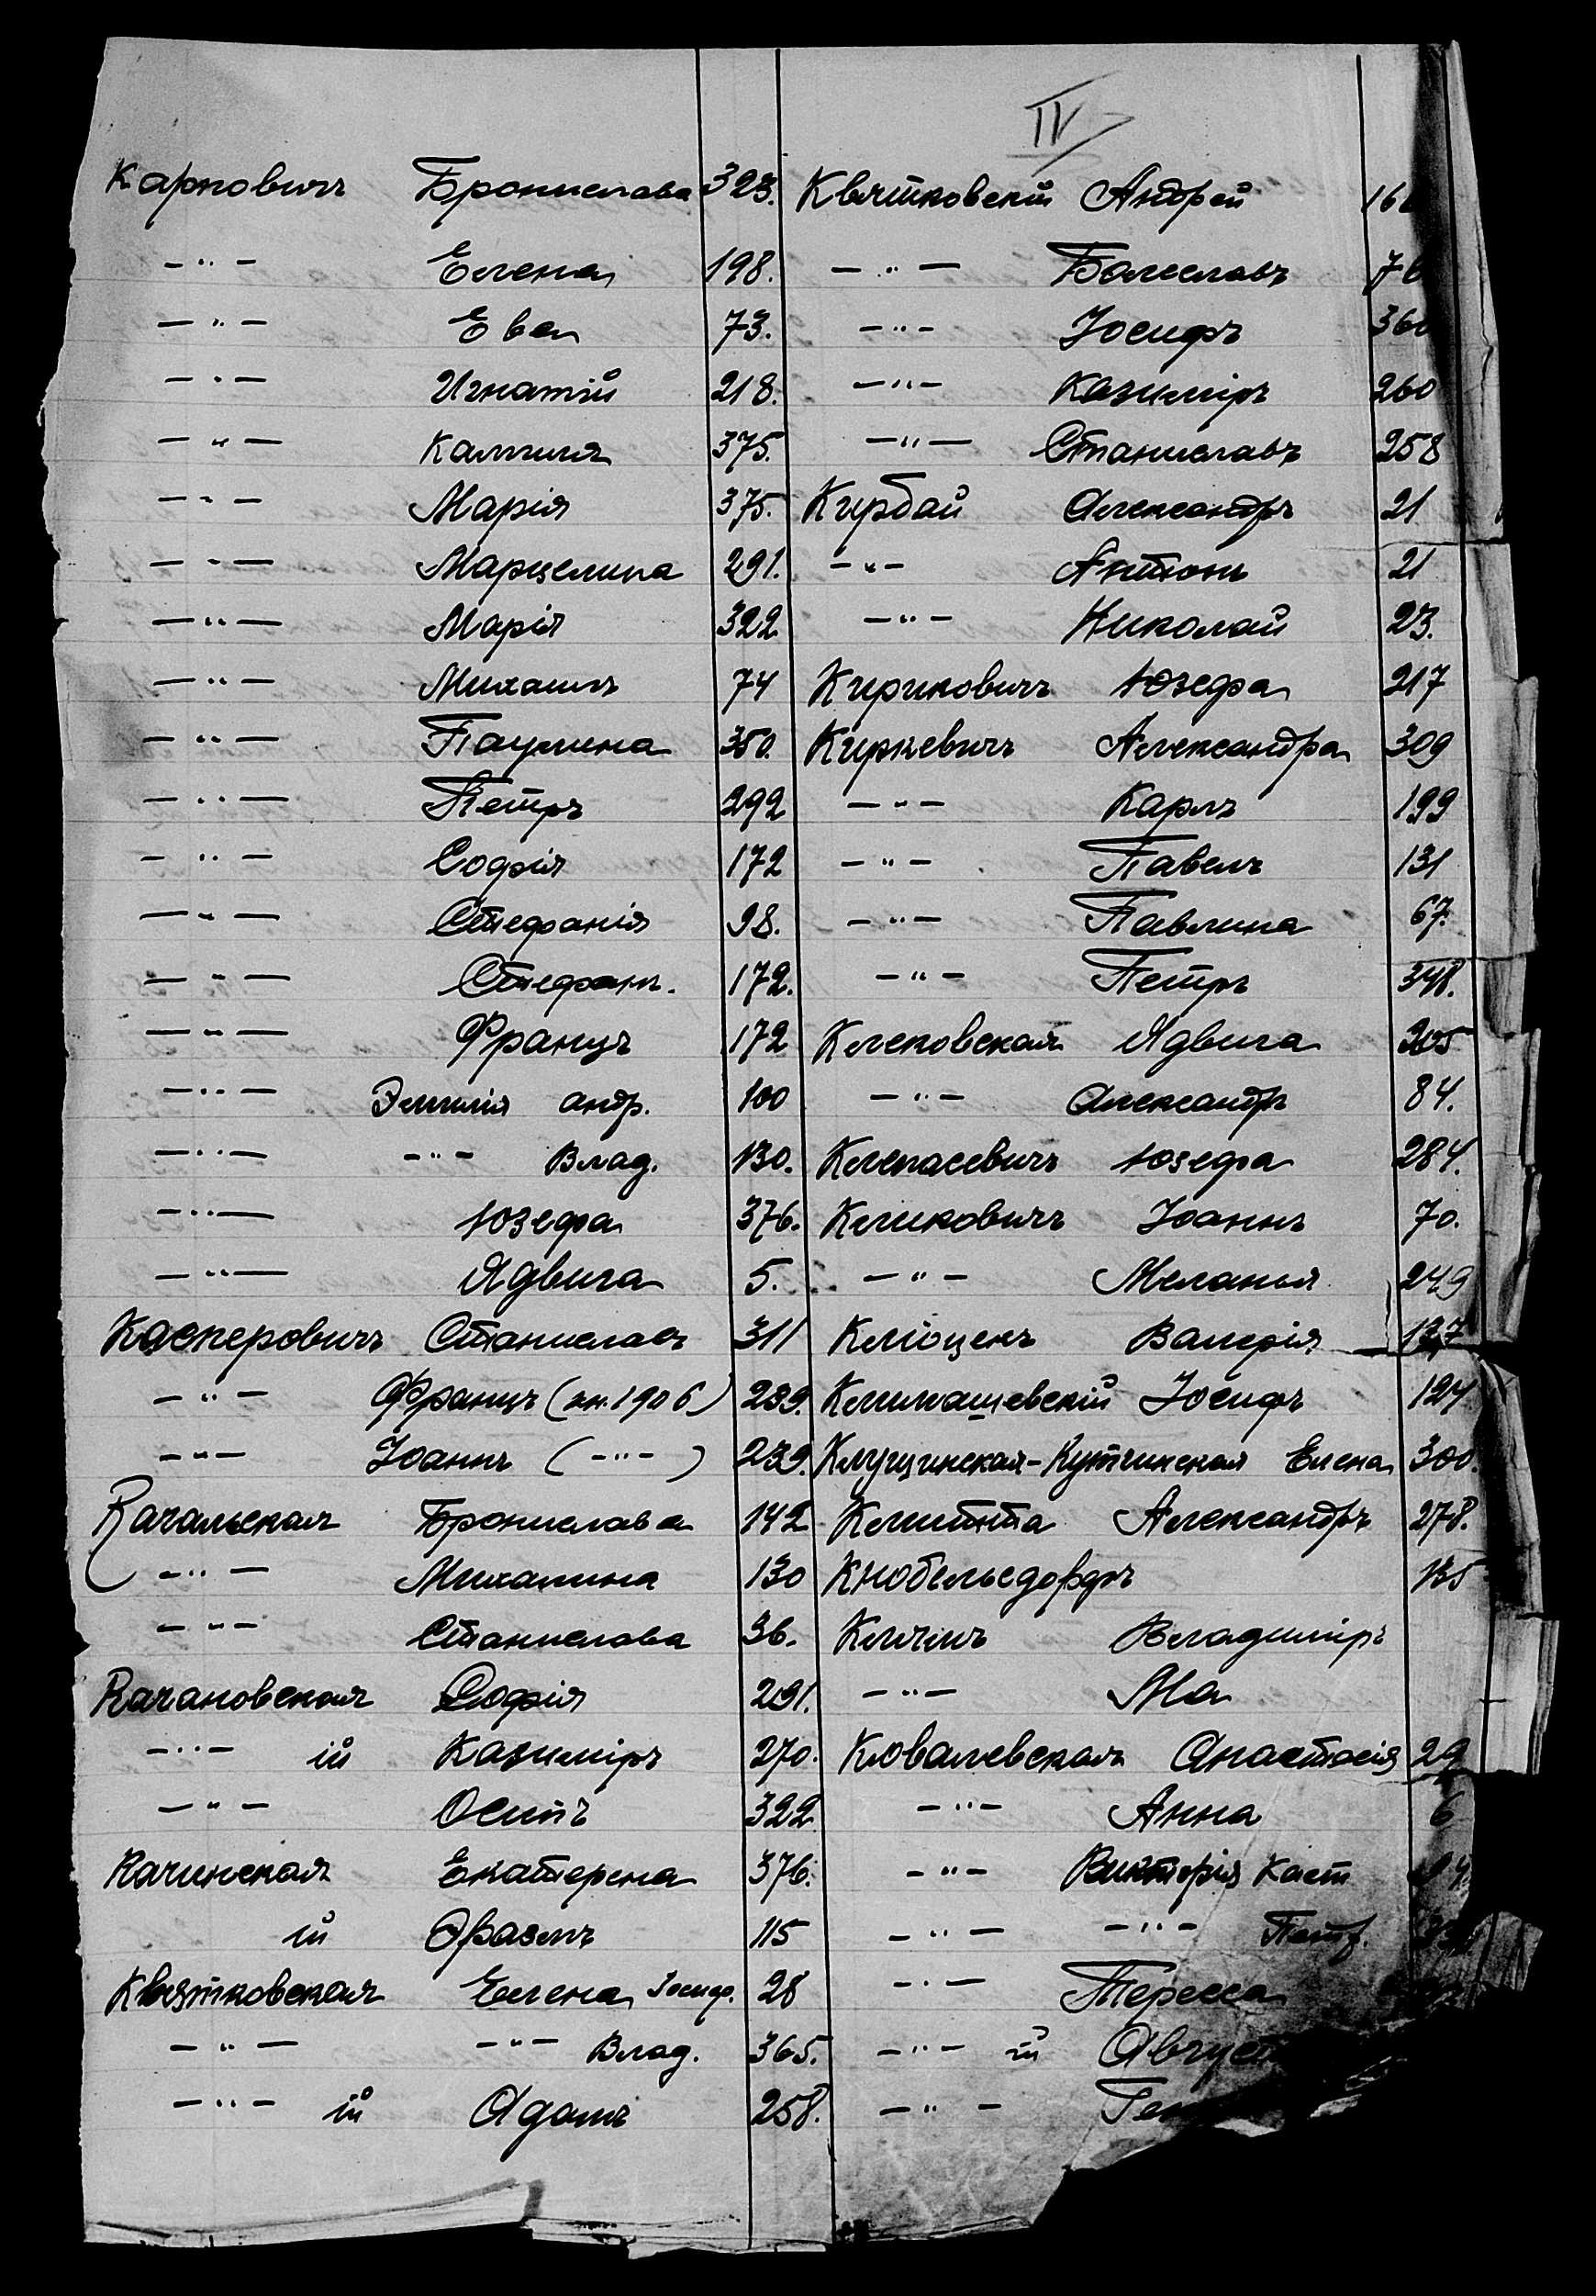 IV
Карповичъ Бронислава 323.
—"— Елена 198.
—"— Ева 73.
—"— Игнатій 218.
—"— Камилія 375.
—"— Марія 375.
—"— Марцелина 291.
—"— Марія 322
—"— Михаилъ 74
—"— Паулина 350.
—"— Петръ 292
—"— Софія 172
—"— Стефанія 98.
—"— Стефанъ. 172.
—"— Францъ 172
—"— Эмилія андр. 100
—"— —"— Влад. 130.
—"— Юзефа 376.
—"— Ядвига 5.
Касперовичъ Станиславъ 311
—"— Францъ (кн. 1906) 239.
—"— Іоаннъ (—"—) 239.
Качальская Бронислава 142
—"— Михалина 130
—"— Станислава 36.
Качановская Софія 291.
—"— ій Казиміръ 270.
—"— Осипъ 322
Качинская Екатерена 376.
ій Эразмъ 115
Квятковская Елена Іосиф. 28
—"— —"— Влад. 365.
—"— ій Адамъ 258.
Квятковскій Андрей
—"— Болеславъ
—"— Іосифъ 360
—"— Казиміръ 260
—"— Станиславъ 258
Кирбай Александръ 21
—"— Антонъ 21
—"— Николай 23.
Кириковичъ Юзефа 217
Киркевичъ Александра 309
—"— Карлъ 199
—"— Павелъ 131
—"— Павлина 67.
—"— Петръ 348.
Клековская Ядвига 205
—"— Александръ 84.
Клепасевичъ Юзефа 284.
Кликовичъ Іоаннъ 70.
—"— Меланья 249
Клюценъ Валерія 127
Климашевскій Іосифъ 124
Клущинская-Кутчинская Елена 300.
Климтта Александръ 278.
Кнобельсдорфъ
Клячинъ Владиміръ
—"— Ма
Ковалевская Анастасія 29
—"— Анна 6
—"— Викторія Каст
—"— —"— Петр.
—"— Тересса
—"— ій Август
—"— Ген